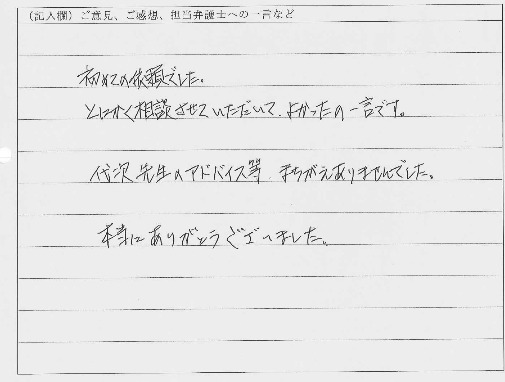 (記入欄) ご意見、ご感想、担当弁護士への一言など
初めての依頼でした。
とにかく相談させていただいて、よかったの一言です。
先生のアドバイス等、まちがえありませんでした。
本当にありがとうございました。